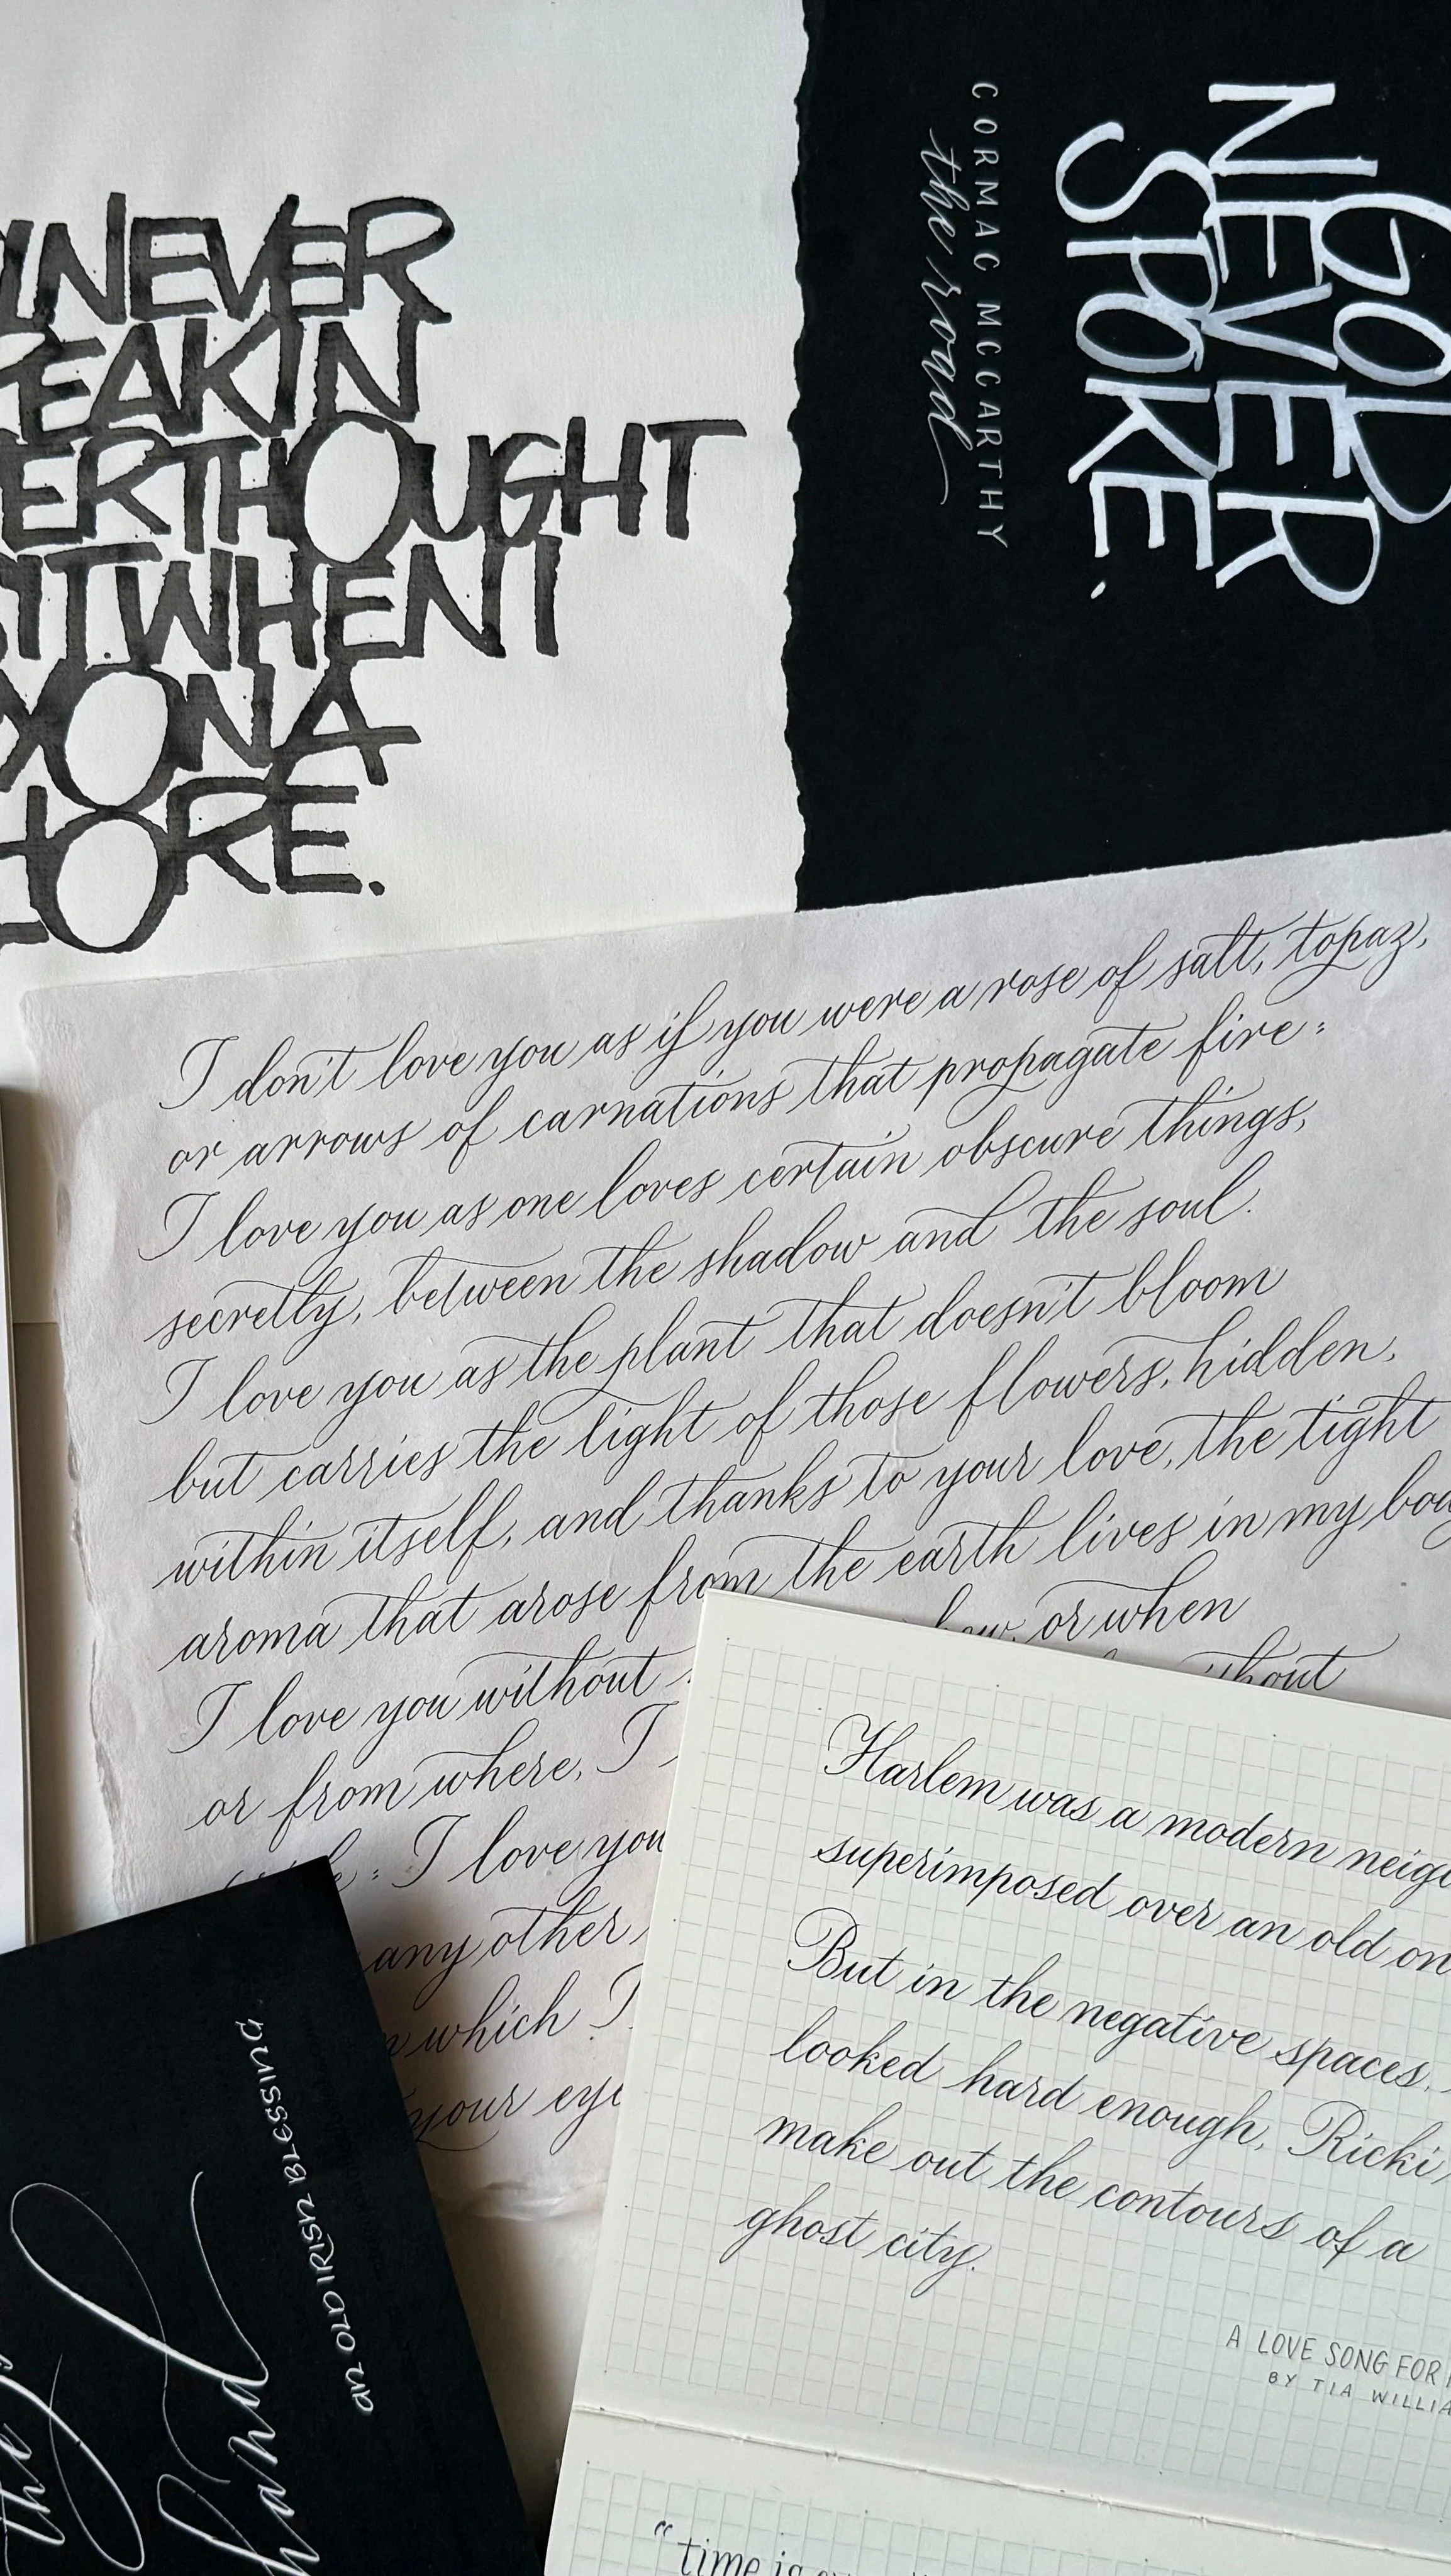 NEVER
IN
THOUGHT
WHEN I
ON A
GOD
NEVER
SPOKE.
CORMAC MCCARTHY
the road
I don't love you as if you were a rose of salt, topaz,
or arrows of carnations that propagate fire:
I love you as one loves certain obscure things,
secretly, between the shadow and the soul.
I love you as the plant that doesn't bloom
but carries the light of those flowers, hidden,
within itself, and thanks to your love, the tight
aroma that arose from the earth lives in my
I love you without or when
or from where, I
: I love you
any other
which I
your
Harlem was a modern
superimposed over an old
But in the negative spaces,
looked hard enough, Ricki,
make out the contours of a
ghost city.
A LOVE SONG FOR
BY TIA
"time is
AN OLD IRISH BLESSING
the
hand